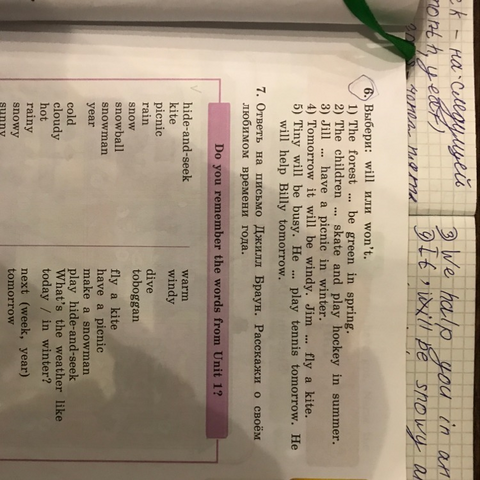 6. Выбери: will или won't.
1) The forest ... be green in spring.
2) The children ... skate and play hockey in summer.
3) Jill ... have a picnic in winter.
4) Tomorrow it will be windy. Jim ... fly a kite.
5) Tiny will be busy. He ... play tennis tomorrow. He
will help Billy tomorrow.
7. Ответь на письмо Джилл Браун. Расскажи о своём
любимом времени года.
Do you remember the words from Unit 1?
hide-and-seek
kite
picnic
rain
snow
snowball
snowman
year
cold
cloudy
hot
rainy
snowy
sunny
warm
windy
dive
toboggan
fly a kite
have a picnic
make a snowman
play hide-and-seek
What's the weather like
today / in winter?
next (week, year)
tomorrow
- на следующей
3) We help you in an
It will be snowy an